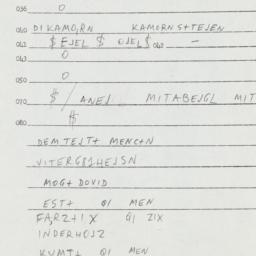 036 0
040 DIKAMO,RN KAMORNS+TEJEN
041 $ EJEL $ OJEL$ 042 —
043 0
050 0
070 $ / ANEJ MITABEJGL MIT
080 $
DEM TEJT+ MENC+N
VITERG81HEJSN
MOG+ DOVID
EST+ QI MEN
FA,RZ+I X QI ZIX
INDERHOJZ
KUMT+ QI MEN